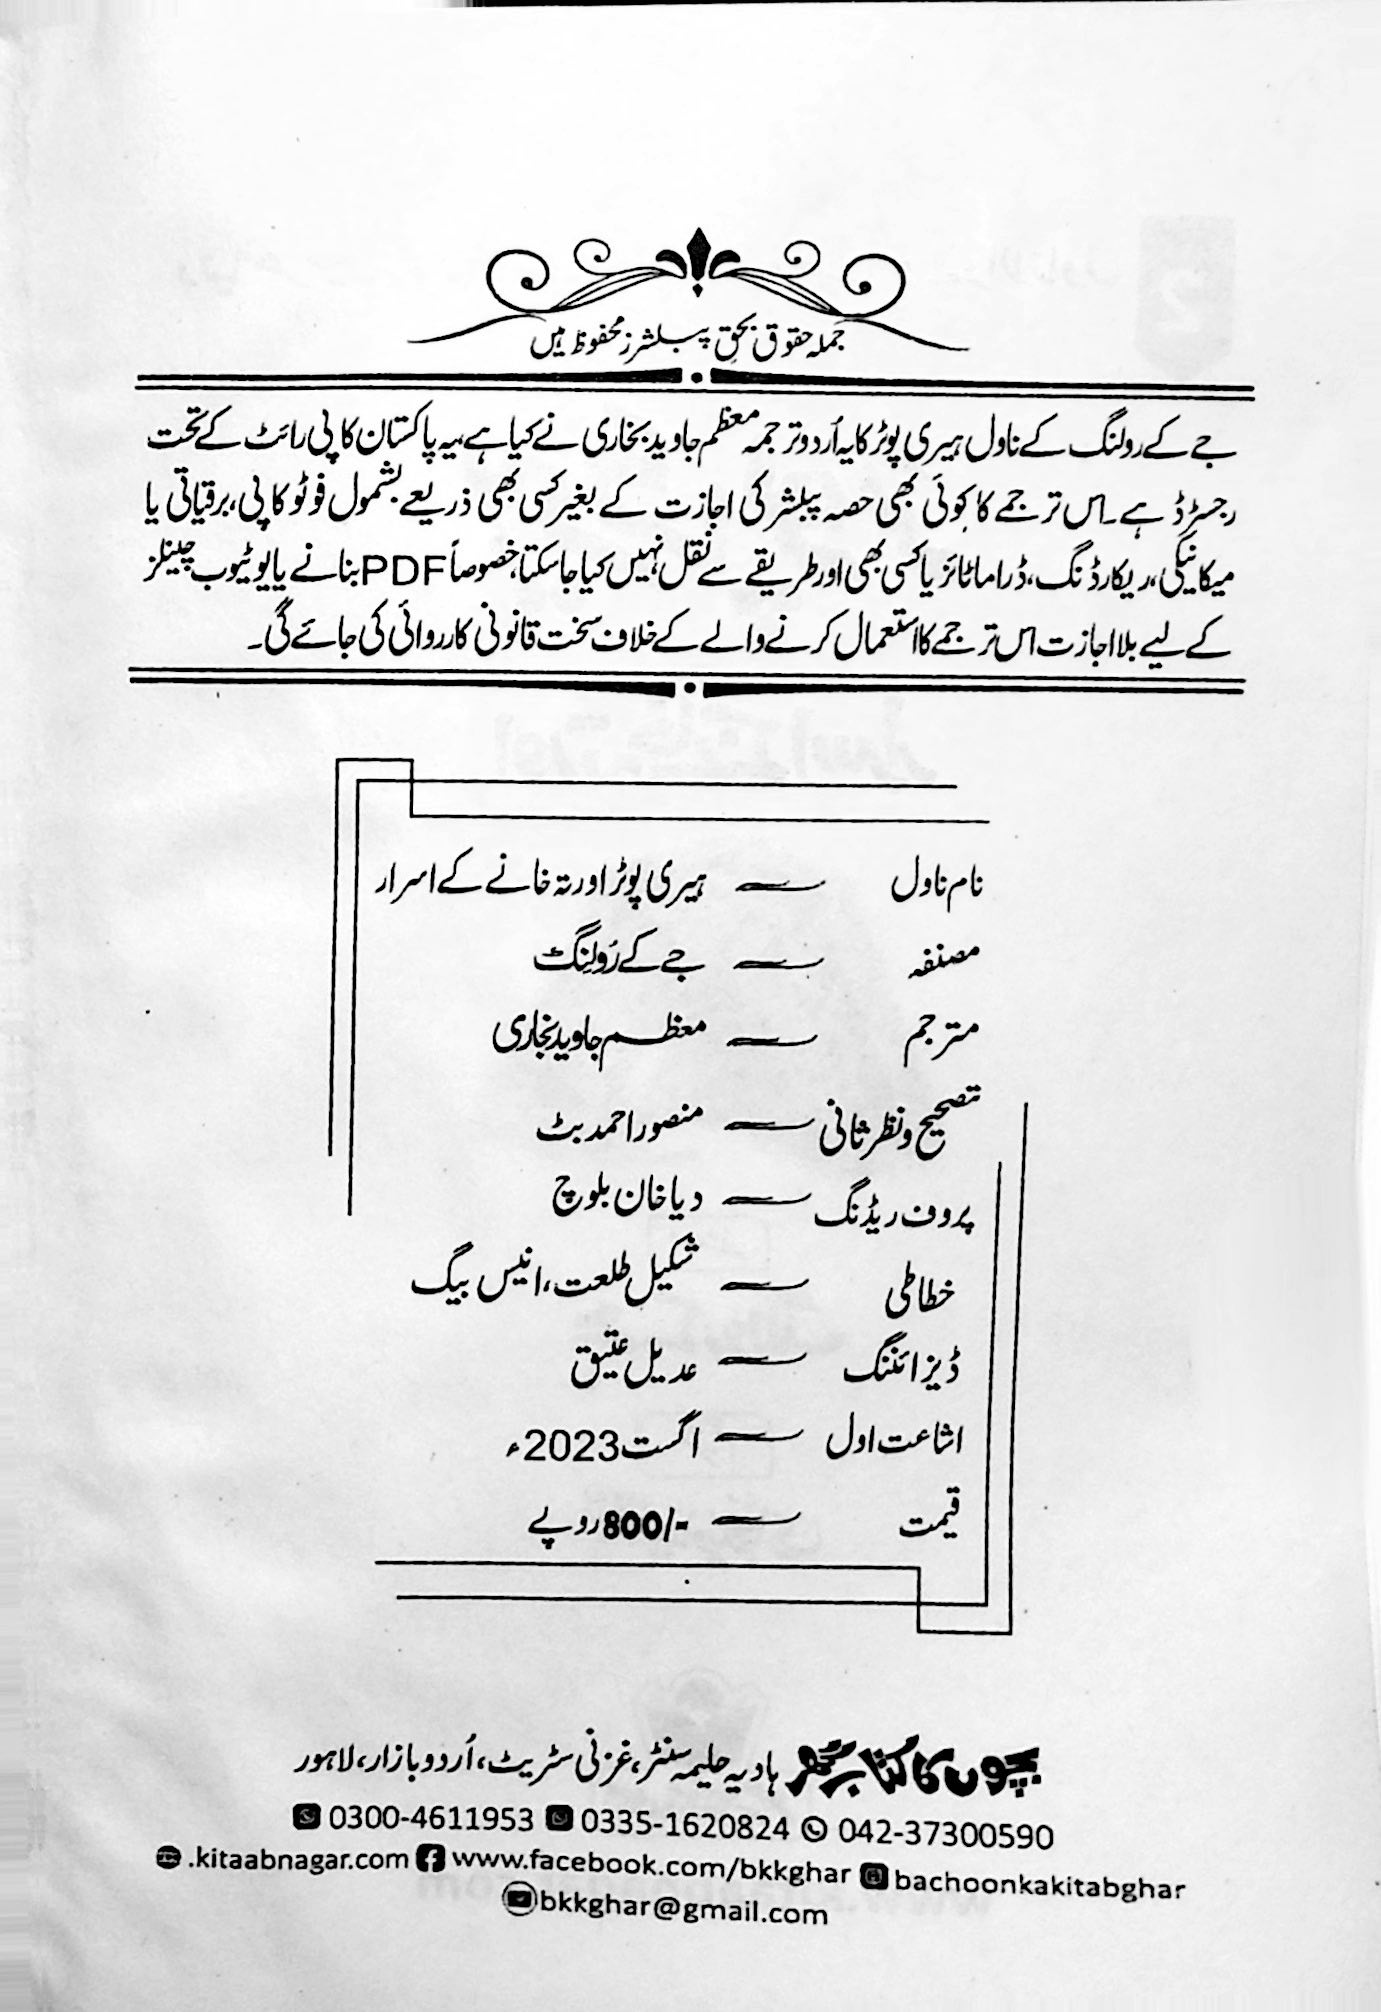 جملہ حقوق بحقِ پبلشرز محفوظ ہیں
جے کے رولنگ کے ناول ہیری پوٹر کا یہ اُردو ترجمہ معظم جاوید بخاری نے کیا ہے، یہ پاکستان کاپی رائٹ کے تحت
رجسٹرڈ ہے۔ اس ترجمے کا کوئی بھی حصہ پبلشر کی اجازت کے بغیر کسی بھی ذریعے بشمول فوٹو کاپی، برقیاتی یا
میکانیکی، ریکارڈنگ، ڈراماٹائز یا کسی بھی اور طریقے سے نقل نہیں کیا جا سکتا، خصوصاً PDF بنانے یا یوٹیوب چینلز
کے لیے بلا اجازت اس ترجمے کا استعمال کرنے والے کے خلاف سخت قانونی کارروائی کی جائے گی۔
نام ناول — ہیری پوٹر اور تہ خانے کے اسرار
مصنفہ — جے کے رَولِنگ
مترجم — معظم جاوید بخاری
تصحیح و نظر ثانی — منصور احمد بٹ
پروف ریڈنگ — دیا خان بلوچ
خطاطی — شکیل طلعت، انیس بیگ
ڈیزائننگ — عدیل عتیق
اشاعت اول — اگست 2023ء
قیمت — 800/- روپے
بچوں کا کتاب گھر ہادیہ حلیمہ سنٹر، غزنی سٹریٹ، اُردو بازار، لاہور
0300-4611953 0335-1620824 042-37300590
.kitaabnagar.com www.facebook.com/bkkghar bachoonkakitabghar
bkkghar@gmail.com